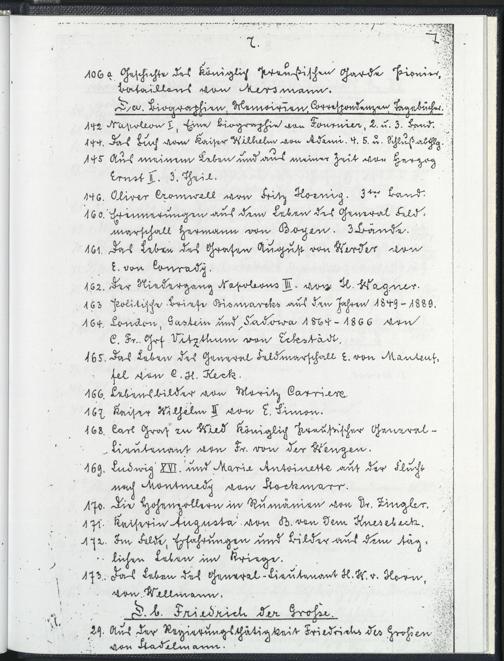 7.
7
106a Geschichte des Königlich Preußischen Garde Pionier,
bataillons von Mersmann.
D. a. Biographien, Memoirien, Correspondenzen, Tagebücher.
142 Napoleon I, Eine Biographie von Fournier, 2. u. 3. Band.
144. Das Buch vom Kaiser Wilhelm von Adami. 4. 5. u. Schluß-Abthlg.
145 Aus meinem Leben und aus meiner Zeit von Herzog
Ernst II. 3. Theil.
146. Oliver Cromwell von Fritz Hoenig. 3ter Band.
160. Erinnerungen aus dem Leben des General Feld,
marschall Hermann von Boyen. 3 Bände.
161. Das Leben des Grafen August von Werder von
E. von Conrady.
162. Der Niedergang Napoleons III. von H. Wagner.
163 Politische Briefe Bismarcks aus den Jahren 1849-1889.
164. London, Gastein und Sadowa 1864-1866 von
C. Fr. Grf Vitzthum von Eckstädt.
165. Das Leben des General Feldmarschall E. von Manteuf,
fel von C. H. Keck.
166. Lebensbilder von Moritz Carriere
167. Kaiser Wilhelm II von E. Simon.
168. Carl Graf zu Wied Königlich Preußischer General-
Lieutenant von Fr. von der Wengen.
169. Ludwig XVI. und Marie Antoinette auf der Flucht
nach Montmedy von Stockmarr.
170. Die Hohenzollern in Rumänien von Dr. Zingler.
171. Kaiserin Augusta von B. von dem Knesebeck.
172. Im Felde, Erfahrungen und Bilder aus dem täg,
lichen Leben im Kriege.
173. Das Leben des General-Lieutenant H. W. v. Horn,
von Wellmann.
D. b. Friedrich der Große.
29. Aus der Regierungsthätigkeit Friedrichs des Großen
von Stadelmann.